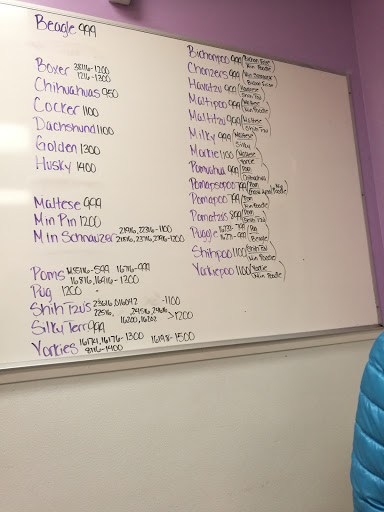 Beagle 999
Boxer 38116-1200
1216-1300
Chihuahuas 950
Cocker 1100
Dachshund 1100
Golden 1300
Husky 1400
Maltese 999
Min Pin 1200
Min Schnauzer 21916, 22316-1100
Poms 165116-599 16716-999
16816, 16916-1300
Pug 1200 -
Shih Tzu's 23616, 016042 -1100
22516, 24516, 24616
16200, 16202 >1200
Silky Terr 999
Yorkies 16174, 16176-1300 16198-1500
8116-1400
Bichonpoo 999 Bichon Frise
Min Poodle
Chonzers 999 Min Schnauzer
Bichon Frise
Havatzu 999 Havanese
Shih Tzu
Maltipoo 999 Maltese
Min Poodle
Maltitzu 999 Maltese
Shih Tzu
Milky 999 Maltese
Silky
Morkie 1100 Maltese
Yorkie
Pomchua 999 Pom
Chihuahua
Pomapoo 799 Pom
Min Poodle
Pomatzus 899 Pom
Shih Tzu
Puggle 16232-799 Pug
16233-999 Beagle
Shihpoo 1100 Shih Tzu
Min Poodle
Yorkiepoo 1100 Yorkie
Min Poodle